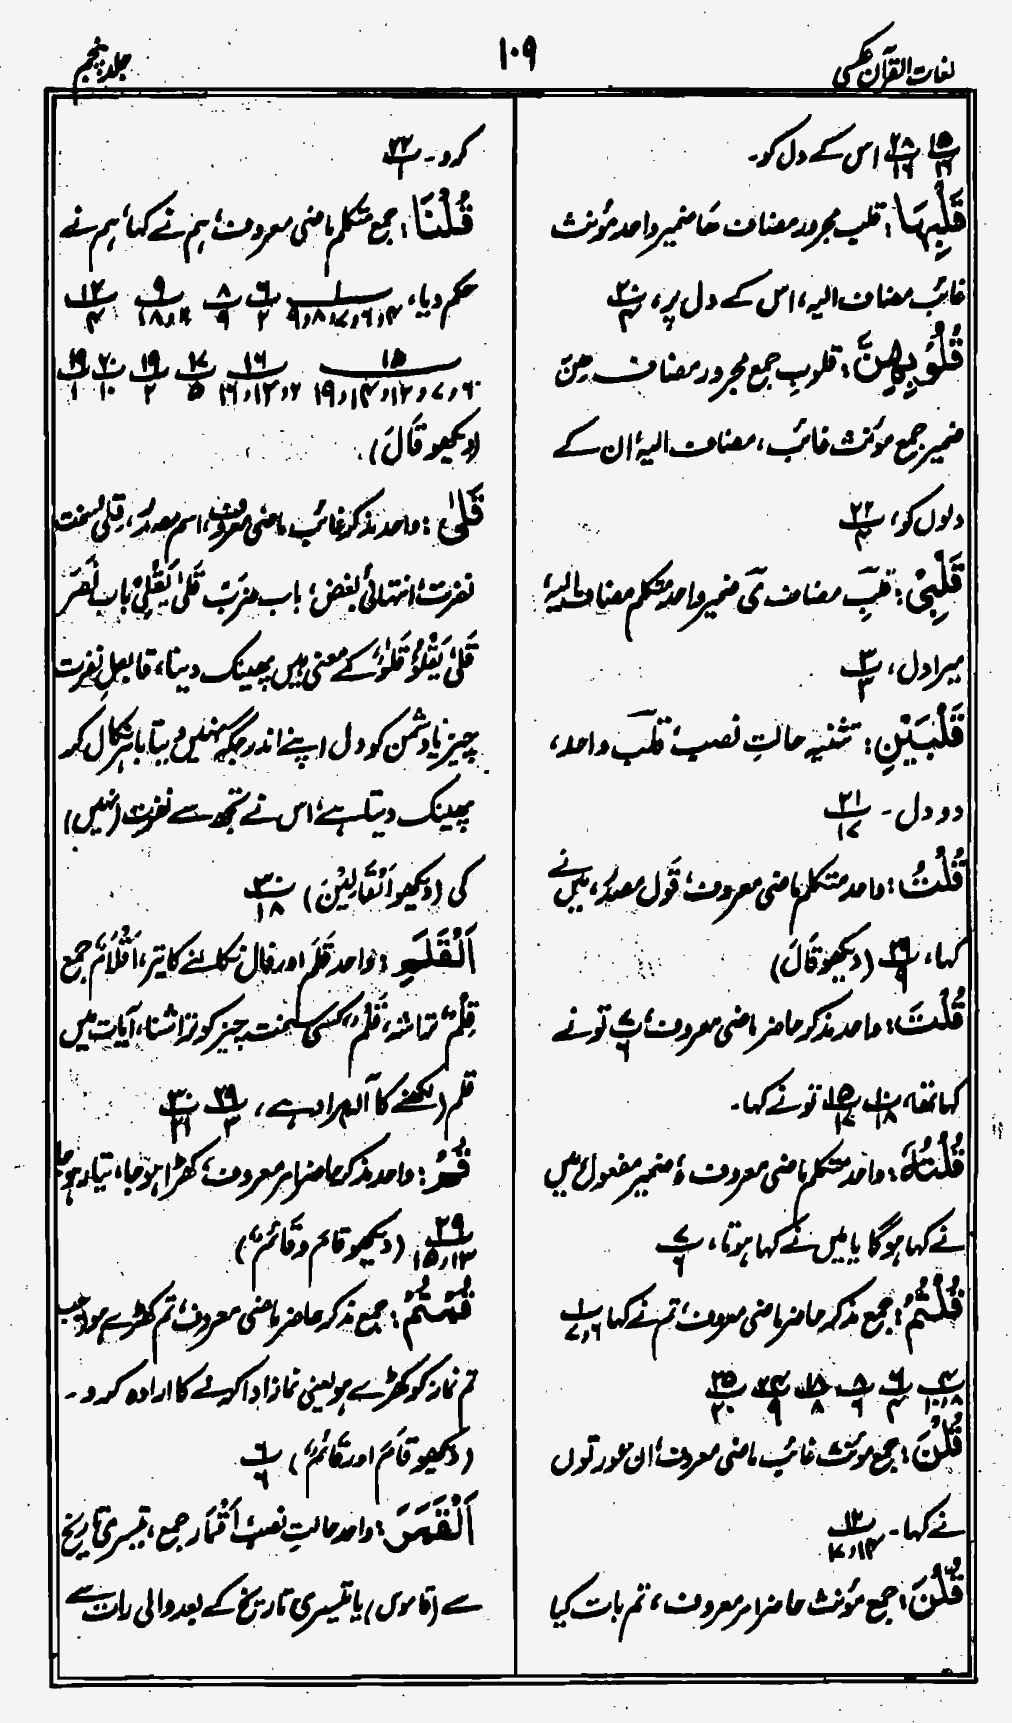 لغات القرآن عکسی
۱۰۹
جلد پنجم
۱۵/۱۶ ۲۸/۱۶ اس کے دل کو۔
قَلْبِہَا: قلب مجرور مضاف ھَا ضمیر واحد مؤنث
غائب مضاف الیہ، اس کے دل پر، ۲۰/۴
قُلُوْبِہِنَّ: قلوبِ جمع مجرور مضاف ھِنَّ
ضمیر جمع مؤنث غائب، مضاف الیہ، ان کے
دلوں کو، ۲۲/۴
قَلْبِیْ: قلبِ مضاف یَ ضمیر واحد متکلم مضاف الیہ،
میرا دل، ۳/۳
قَلْبَیْنِ: تثنیہ حالتِ نصب، قلب واحد،
دو دل۔ ۲۱/۱۷
قُلْتُ: واحد متکلم ماضی معروف، قَول مصدر، میں نے
کہا، ۲۹/۹ (دیکھو قَالَ)
قُلْتَ: واحد مذکر حاضر ماضی معروف، ۷/۶ تو نے
کہا تھا، ۱۰/۱۸ ۱۵/۱۷ تو نے کہا۔
قُلْتُہٗ: واحد متکلم ماضی معروف، ہٗ ضمیر مفعول، میں
نے کہا ہوگا یا میں نے کہا ہوتا، ۷/۶
قُلْتُمْ: جمع مذکر حاضر ماضی معروف، تم نے کہا ۱/۶،۷
۴/۸،۱۰ ۶/۴ ۸/۶ ۱۸/۸ ۲۴/۹ ۲۵/۲۰
قُلْنَ: جمع مؤنث غائب ماضی معروف، ان عورتوں
نے کہا۔ ۱۲/۱۴،۱۷
قُلْنَ: جمع مؤنث حاضر امر معروف، تم بات کیا
کرو۔ ۲۲/۱
قُلْنَا: جمع متکلم ماضی معروف، ہم نے کہا، ہم نے
حکم دیا، ۱/۴،۶،۷،۸،۹ ۶/۲ ۸/۹ ۹/۱۱،۱۸ ۱۲/۴
۱۵/۶،۷،۱۲،۱۴،۱۹ ۱۶/۲،۱۲،۱۶ ۱۷/۵ ۱۹/۲ ۲۰/۱۰ ۱۹/۱
(دیکھو قَالَ)۔
قَلٰی: واحد مذکر غائب ماضی معروف، اسم مصدر، قِلٰی سخت
نفرت، انتہائی بغض، باب ضَرَبَ قَلٰی یَقْلِیْ باب نَصَرَ
قَلٰی یَقْلُوْ قَلْوًا کے معنی ہیں پھینک دینا، قابلِ نفرت
چیز یا دشمن کو دل اپنے اندر جگہ نہیں دیتا باہر نکال کر
پھینک دیتا ہے، اس نے تجھ سے نفرت (نہیں)
کی (دیکھو اَلْقَالِیْنَ) ۳۰/۱۸
اَلْقَلَمِ: واحد قَلَم اور فال نکالنے کا تیر، اَقْلَامٌ جمع
قِلْمٌ تراشہ، قَلْمٌ کسی سخت چیز کو تراشنا، آیات میں
قلم (لکھنے کا آلہ) مراد ہے، ۲۹/۳ ۳۰/۲۱
قُمْ: واحد مذکر حاضر امر معروف، کھڑا ہو جا، تیار ہو جا
۲۹/۱۳،۱۵ (دیکھو قَامَ و قَائِمٌ)
قُمْتُمْ: جمع مذکر حاضر ماضی معروف، تم کھڑے ہو، جب
تم نماز کو کھڑے ہو یعنی نماز ادا کرنے کا ارادہ کرو۔
(دیکھو قَامَ اور قَائِمٌ) ۶/۶
اَلْقَمَرَ: واحد حالتِ نصب، اَقْمَار جمع، تیسری تاریخ
سے (قاموس) یا تیسری تاریخ کے بعد والی رات سے